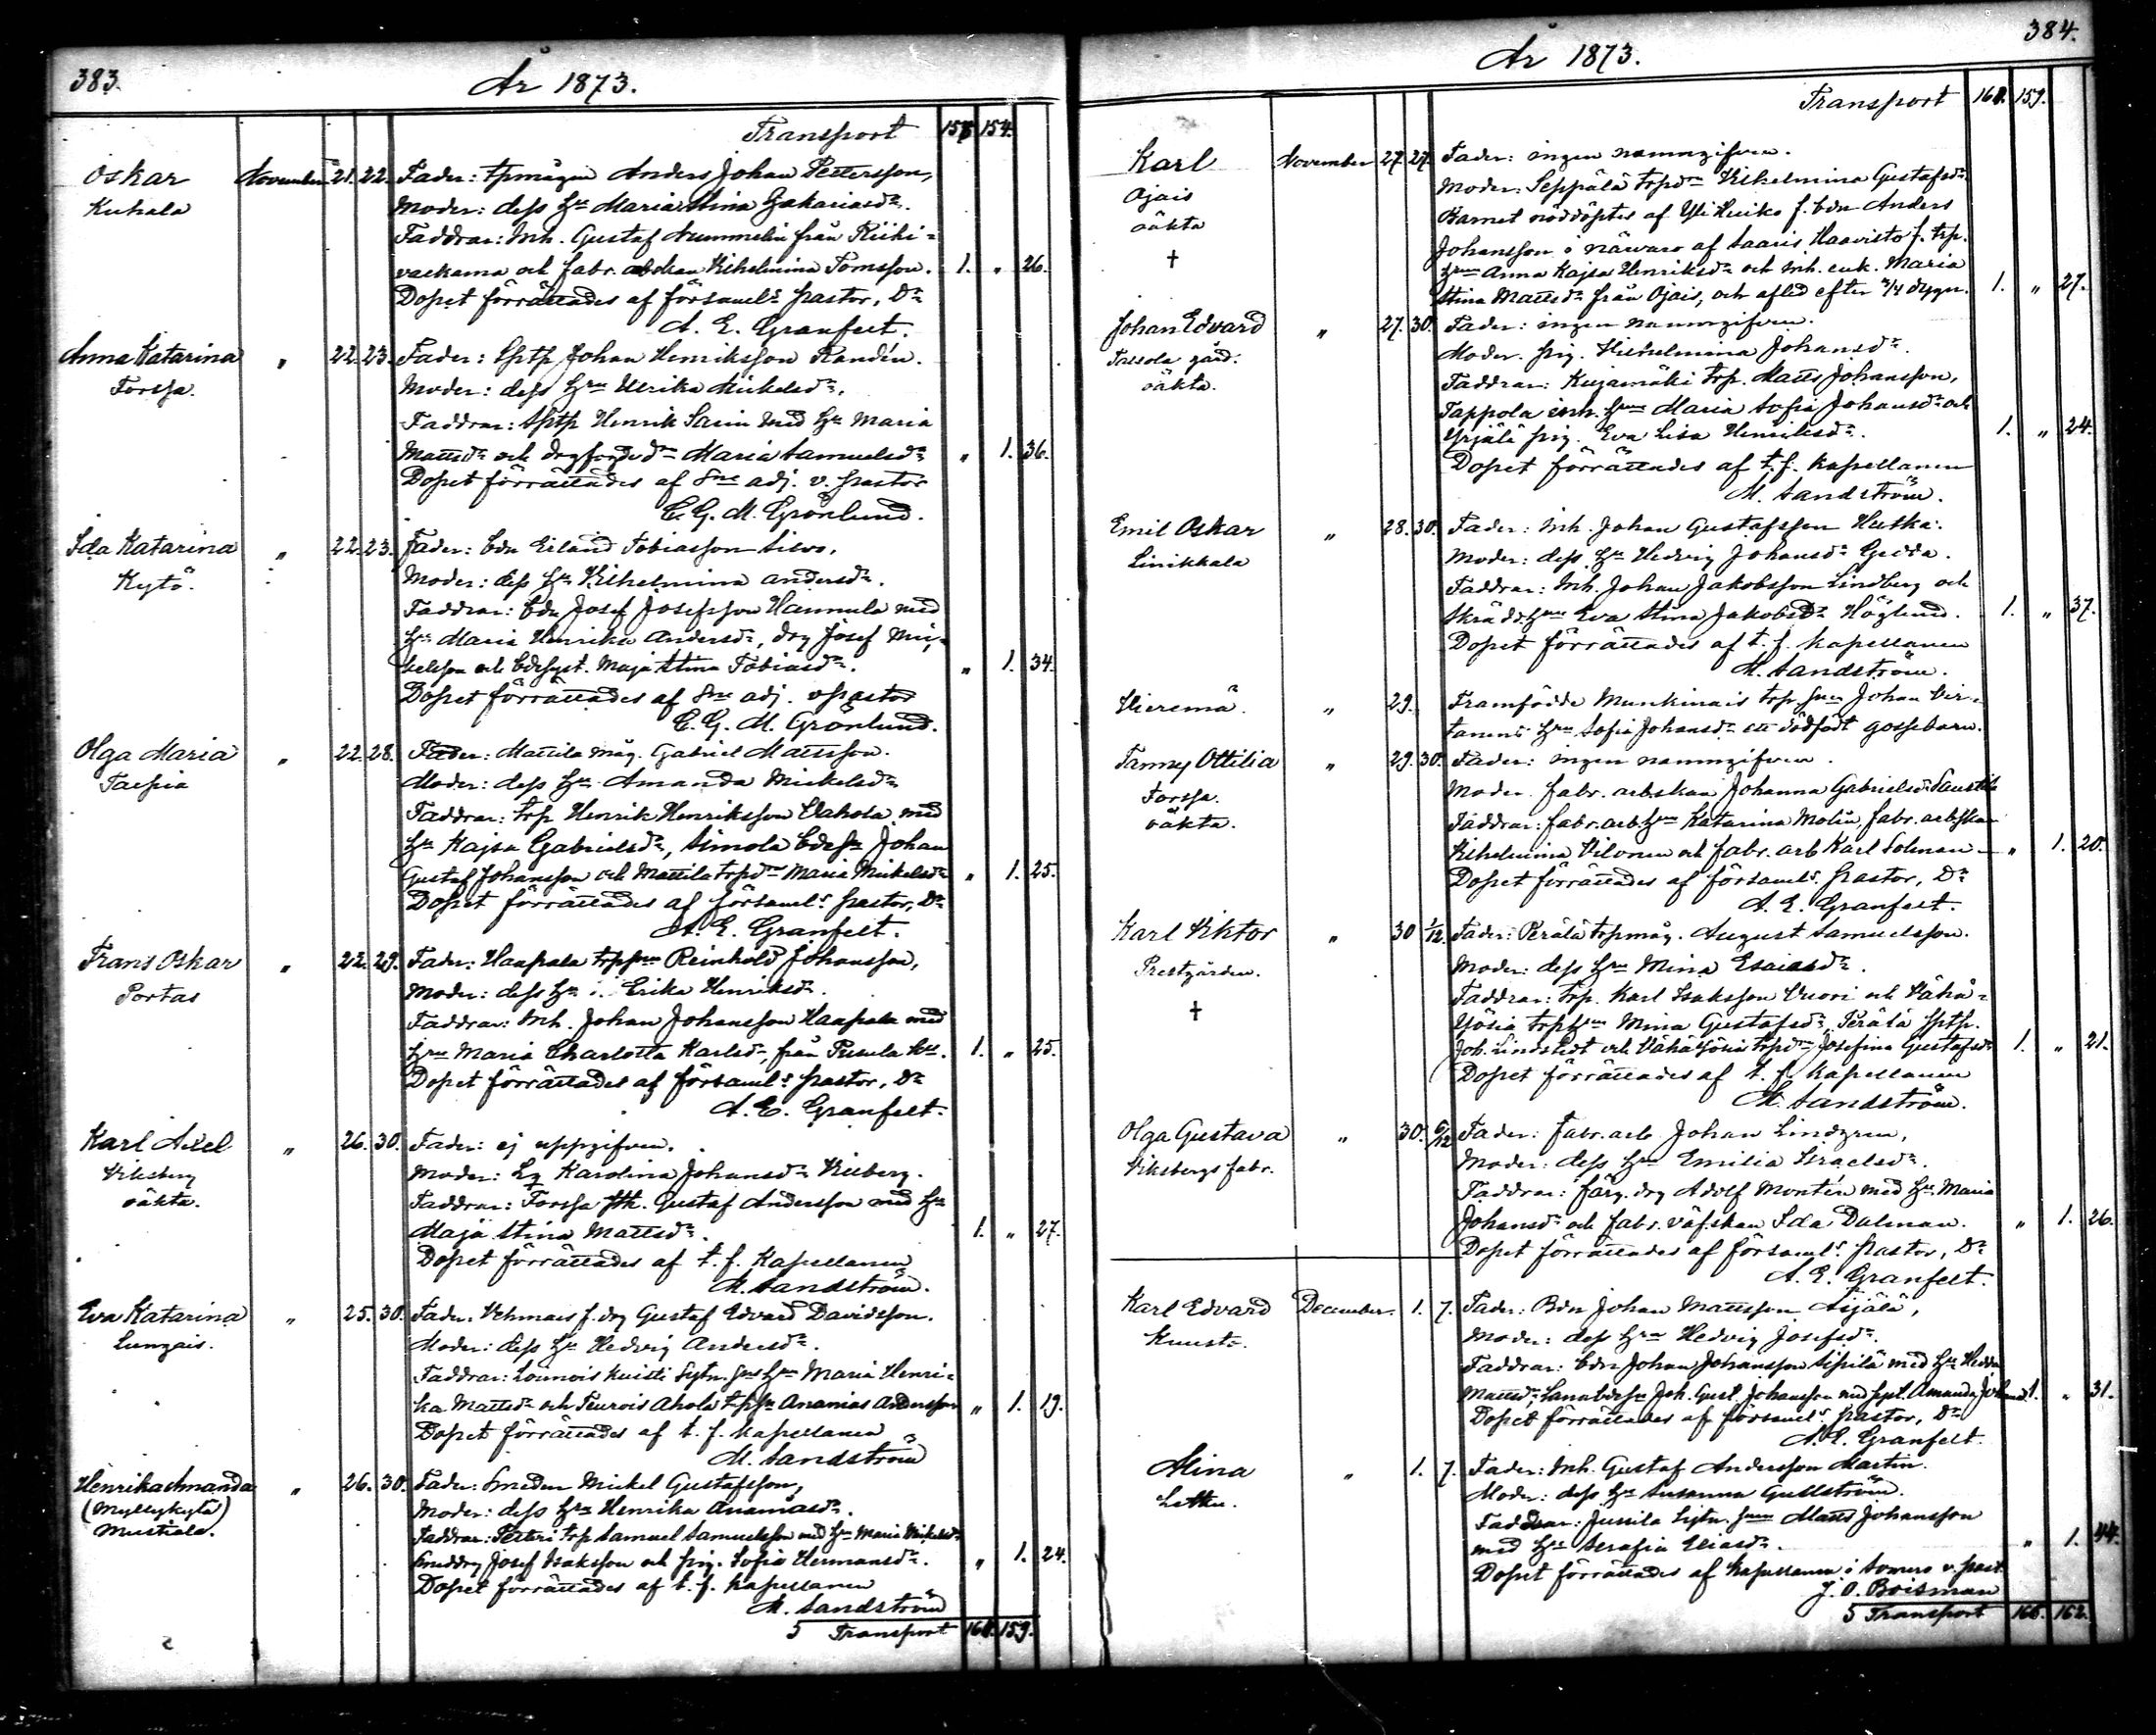 383.
År 1873.
Transport 157. 154.
Oskar November 21. 22. Fader: tpmågen Anders Johan Pettersson,
Kuhala Moder: dess Hu Maria Stina Zakariasdr.
Faddrar: Inh. Gustaf Nummelin från Kiiki-
vackama och fabr. arbskan Wilhelmina Tomsson. 1. " 26.
Dopet förrättades af församls pastor, Dr
A. E. Granfelt.
Anna Katarina " 22. 23. Fader: Sptp Johan Henriksson Randén.
Forssa. Moder: dess Hru Ulrika Mickelsdr.
Faddrar: Sptp Henrik Sarin med Hu Maria
Mattsdr och Maria Samuelsdr " 1. 36.
Dopet förrättades af adj. v. pastor
E. G. M. Grönlund.
Ida Katarina " 22. 23. Fader: bdn Erland Tobiasson Silvo,
Kytö. Moder: dess Hu Wilhelmina Andersdr.
Faddrar: bdn Josef Josefsson Hannula med
Hu Maria Henrika Andersdr, drg Josef Mi-
kelsson och Maja Stina Tobiasdr. " 1. 34.
Dopet förrättades af adj. v pastor
E. G. M. Grönlund.
Olga Maria " 22. 28. Fader: Mattila måg. Gabriel Mattsson.
Taipia Moder: dess Hu Amanda Mickelsdr
Faddrar: trp Henrik Henriksson Vahola med
Hu Kajsa Gabrielsdr, Simola Johan
Gustaf Johansson och Mattila trpdr Maria Mickelsdr " 1. 25.
Dopet förrättades af församls pastor, Dr
A. E. Granfelt.
Frans Oskar " 22. 29. Fader: Haapala trpson Reinhold Johansson,
Portas Moder: dess Hu i. Erika Henriksdr.
Faddrar: Inh. Johan Johansson Haapala med
Hru Maria Charlotta Karlsdr, från Pusula 1. " 25.
Dopet förrättades af församls pastor, Dr
A. E. Granfelt.
Karl Axel " 26. 30. Fader: ej uppgifven.
Wiksberg Moder: Karolina Johansdr Wieberg.
oäkta. Faddrar: Forssa Gustaf Andersson med Hu
Maja Stina Mattsdr. 1. " 27.
Dopet förrättades af t. f. Kapellanen
M. Sandström.
Eva Katarina " 25. 30. Fader: Vehmais f. drg Gustaf Edvard Davidsson.
Lunkais. Moder: dess Hu Hedvig Andersdr.
Faddrar: Lounois Maria Henri-
ka Mattsdr och Teurois Ahola Ananias Andersson " 1. 19.
Dopet förrättades af t. f. kapellanen
M. Sandström
Henrika Amanda " 26. 30. Fader: Smeden Mickel Gustafsson,
(Myllykylä) Moder: dess Hru Henrika Ananiasdr.
Mustiala. Faddrar: trp Samuel Samuelsson med Hu Maria Mickelsdr
smeddrg Josef Isaksson och pig. Sofia Hermansdr. " 1. 24.
Dopet förrättades af t. f. kapellanen
M. Sandström
5 Transport 161. 159.
384.
År 1873.
Transport 161. 159.
Karl November 27. 27. Fader: ingen namngifven.
Ojais Moder: Seppälä trpdr Wilhelmina Gustafsdr.
oäkta Barnet nöddöptes af Yli Huiko f. bdn Anders
† Johansson i närvaro af Saaris Haavisto f. trp.
Hrun Anna Kajsa Henriksdr och Inh. enk. Maria
Stina Mattsdr från Ojais, och afled efter dygn. 1. " 27.
Johan Edvard " 27. 30. Fader: ingen namngifven.
gård. Moder: pig. Wilhelmina Johansdr.
oäkta. Faddrar: Kujamäki trp. Matts Johansson,
Tappola inh. Hrun Maria Sofia Johansdr och
Yrjälä pig. Eva Lisa Henriksdr. 1. " 24.
Dopet förrättades af t. f. kapellanen
M. Sandström.
Emil Oskar " 28. 30. Fader: Inh. Johan Gustafsson Hutka.
Linikkala Moder: dess Hu Hedvig Johansdr Gedda.
Faddrar: Inh. Johan Jakobsson Lindberg och
Skrädd. Hrun Eva Stina Jakobsdr Höglund. 1. " 37.
Dopet förrättades af t. f. kapellanen
M. Sandström.
Hieremä. " 29. Framfödde Munkinais trp sonen Johan Vir-
tanens Hru Sofia Johansdr ett dödfödt gossebarn.
Fanny Ottilia " 29. 30. Fader: ingen namngifven.
Forssa. Moder fabr. arbskan Johanna Gabrielsdr
oäkta. Faddrar: fabr. arb. Hrun Katarina Molin, fabr. arbskan
Wilhelmina Vilonen och fabr. arb Karl Solman " 1. 20.
Dopet förrättades af församls. pastor, Dr
A. E. Granfelt.
Karl Viktor " 30 1/12. Fader: Perälä trpmåg. August Samuelsson.
Prestgården. Moder: dess Hru Mina Esaiasdr.
† Faddrar: trp. Karl Isaksson Vuori och Vähä-
Yösiä trpHrun Mina Gustafsdr, Perälä sptp.
Joh. Lindstedt och Vähä Yösiä trpdr Josefina Gustafsdr 1. " 21.
Dopet förrättades af t. f. kapellanen
M. Sandström.
Olga Gustava " 30. 6/12 Fader: fabr. arb. Johan Lindgren,
Wiksbergs fabr. Moder: dess Hru Emilia Israelsdr.
Faddrar: färg. drg Adolf Montén med Hu Maria
Johansdr och fabr. väfskan Ida Dalman. " 1. 26.
Dopet förrättades af församls. pastor, Dr
A. E. Granfelt.
Karl Edvard December. 1. 7. Fader: Bdn Johan Mattsson Äijälä,
Moder: dess Hru Hedvig Josefsdr.
Faddrar: bdn Johan Johansson Sipilä med Hu Hedda
Mattsdr, Joh. Gust. Johansson med syst. Amanda 1. " 31.
Dopet förrättades af församls. pastor, Dr
A. E. Granfelt.
Mina " 1. 7. Fader: Inh. Gustaf Andersson Martin.
Moder: dess Hu Susanna Gullström.
Faddrar: Jussila Matts Johansson
med Hu Serafia Eliasdr. " 1. 44.
Dopet förrättades af kapellanen i Somero v. past.
J. O. Boisman
5 Transport 166. 162.